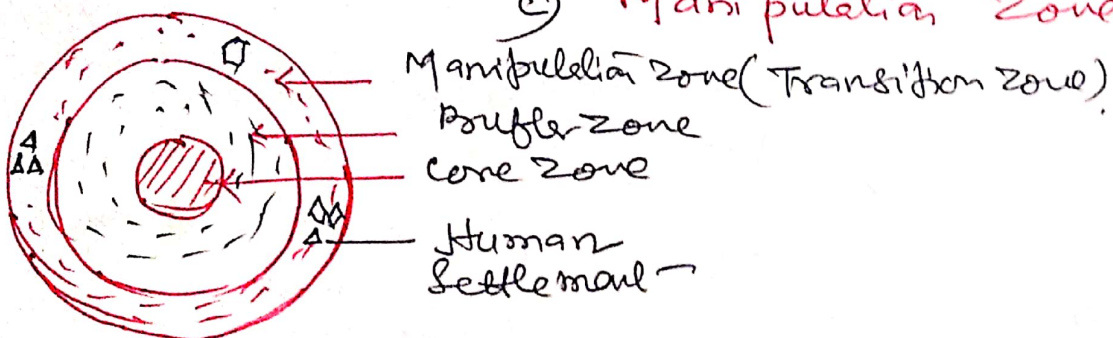 Manipulation Zone
Manipulation Zone (Transition Zone)
Buffer Zone
Core Zone
Human
Settlement